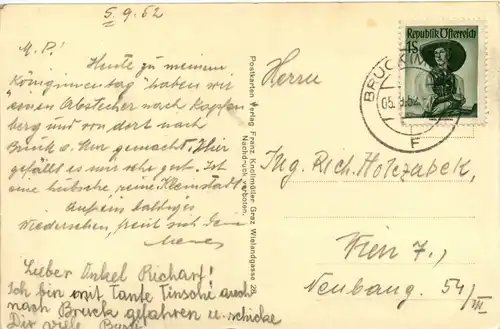 5.9.52
M.P.!
Heute zu meinem
"Königinnentag" haben wir
einen Abstecher nach Kapfen-
berg und von dort nach
Bruck a. Mur gemacht. Hier
gefällt es mir sehr gut. Ist
eine hübsche, reine Kleinstadt.
Auf ein baldiges
Wiedersehen, freut sich Deine
Lieber Onkel Richard!
Ich bin mit Tante auch
nach Bruck gefahren u. schicke
Dir viele
Postkarten Verlag Franz Knollmüller Graz Wielandgasse 28
Nachdruck verboten.
Republik Österreich
1S
BRUCK
05.
F
Herrn
Ing. Rich. Holczabek,
Wien 7.,
Neubaug. 54/III